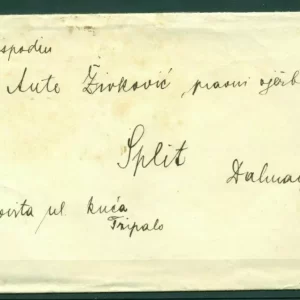 spodin
Ante Živković, pravni
Split
Dalma
ul kuća
Tripalo